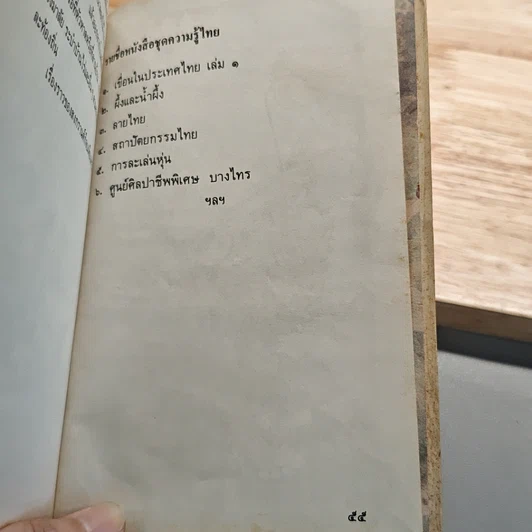 รายชื่อหนังสือชุดความรู้ไทย
๑. เขื่อนในประเทศไทย เล่ม ๑
๒. ผึ้งและน้ำผึ้ง
๓. ลายไทย
๔. สถาปัตยกรรมไทย
๕. การละเล่นหุ่น
๖. ศูนย์ศิลปาชีพพิเศษ บางไทร
ฯลฯ
๕๕